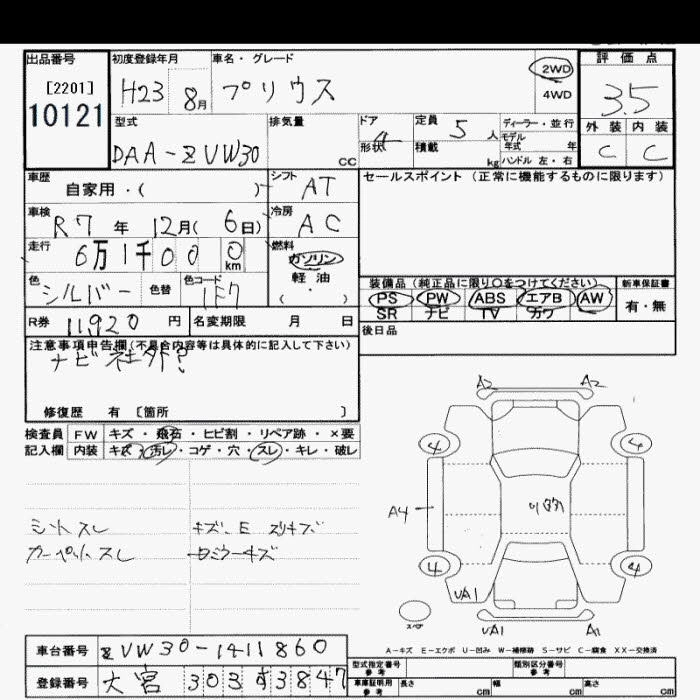 出品番号
[2201]
10121
初度登録年月
H23 8月
車名・グレード
プリウス
2WD
4WD
評価点
3.5
外装 内装
C C
型式
DAA-ZVW30
排気量
CC
ドア
形状
4
定員
5 人
積載
kg
ディーラー・並行
モデル
年式 年
ハンドル 左・右
車歴
自家用・( )
シフト
AT
車検
R7年 12月(6日)
冷房
AC
走行
6万1千000km
燃料
ガソリン
軽油
( ・ )
色
シルバー
色替
色コード
1F7
R券 11920 円
名変期限 月 日
セールスポイント(正常に機能するものに限ります)
装備品(純正品に限り○をつけてください)
新車保証書
PS PW ABS エアB AW
SR ナビ TV カワ
有・無
後日品
注意事項申告欄(不具合内容等は具体的に記入して下さい)
ナビ社外?
修復歴 有 [箇所 ]
検査員
記入欄
FW キズ・飛石・ヒビ割・リペア跡・×要
内装 キズ・汚レ・コゲ・穴・スレ・キレ・破レ
シートスレ
カーペットスレ
A2 A2
4 4
A4
4 4
UA1
UA1 A1
スペア
A-キズ E-エクボ U-凹み W-補修跡 S-サビ C-腐食 XX-交換済
車台番号
ZVW30-1411860
登録番号
大宮 303 す 3847
型式指定番号
参考
類別区分番号
参考
車庫証明用
参考
長さ cm
幅 cm
高さ cm